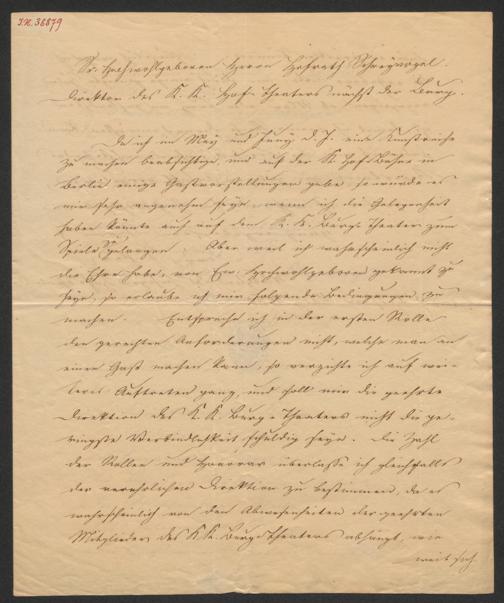 I.N. 38879
Sr. Hochwohlgeboren Herrn Hofrath Schreyvogel.
Direktor des K. K. Hof-Theaters nächst der Burg.
Da ich im May und Juny d. J. eine Kunstreise
zu machen beabsichtige, und auf der K. Hof-Bühne in
Berlin einige Gastvorstellungen gebe, so würde es
mir sehr angenehm seyn, wenn ich die Gelegenheit
haben könnte auch auf dem K. K. Burg-Theater zum
Spiele gelangen. Aber weil ich wahrscheinlich nicht
die Ehre habe, von Ew. Hochwohlgeboren gekannt zu
seyn, so erlaube ich mir folgende Bedingungen zu
machen. Entspreche ich in der ersten Rolle
den gerechten Anforderungen nicht, welche man an
einen Gast machen kann, so verzichte ich auf wei-
teres Auftreten ganz, und soll mir die geehrte
Direktion des K. K. Burg-Theaters nicht die ge-
ringste Verbindlichkeit schuldig seyn. Die Zahl
der Rollen und Honorar überlasse ich gleichfalls
der verehrlichen Direktion zu bestimmen, da es
wahrscheinlich von den Abwesenheiten der geehrten
Mitglieder des K. K. Burg-Theaters abhängt, wie
weit sich